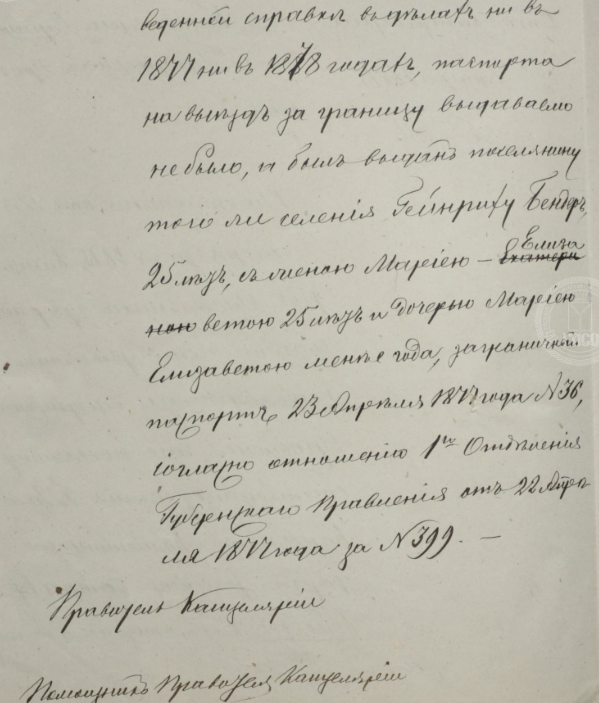 веденной справкѣ въ дѣлахъ ни въ
1877 ни въ 1878 годахъ, паспорта
на выѣздъ за границу выдаваемо
не было, а былъ выданъ поселянину
того же селенія Гейнриху Бендеръ,
25 лѣтъ, съ женою Маріею – Елиза
Екатери
ною ветою 25 лѣтъ и дочерью Маріею
Елизаветою менѣе года, заграничный
паспортъ 23 Апрѣля 1877 года N 36,
согласно отношенію 1го Отдѣленія
Губернскаго Правленія отъ 22 Апрѣ
ля 1877 года за N 399. —
Правитель Канцеляріи
Помощникъ Правителя Канцеляріи